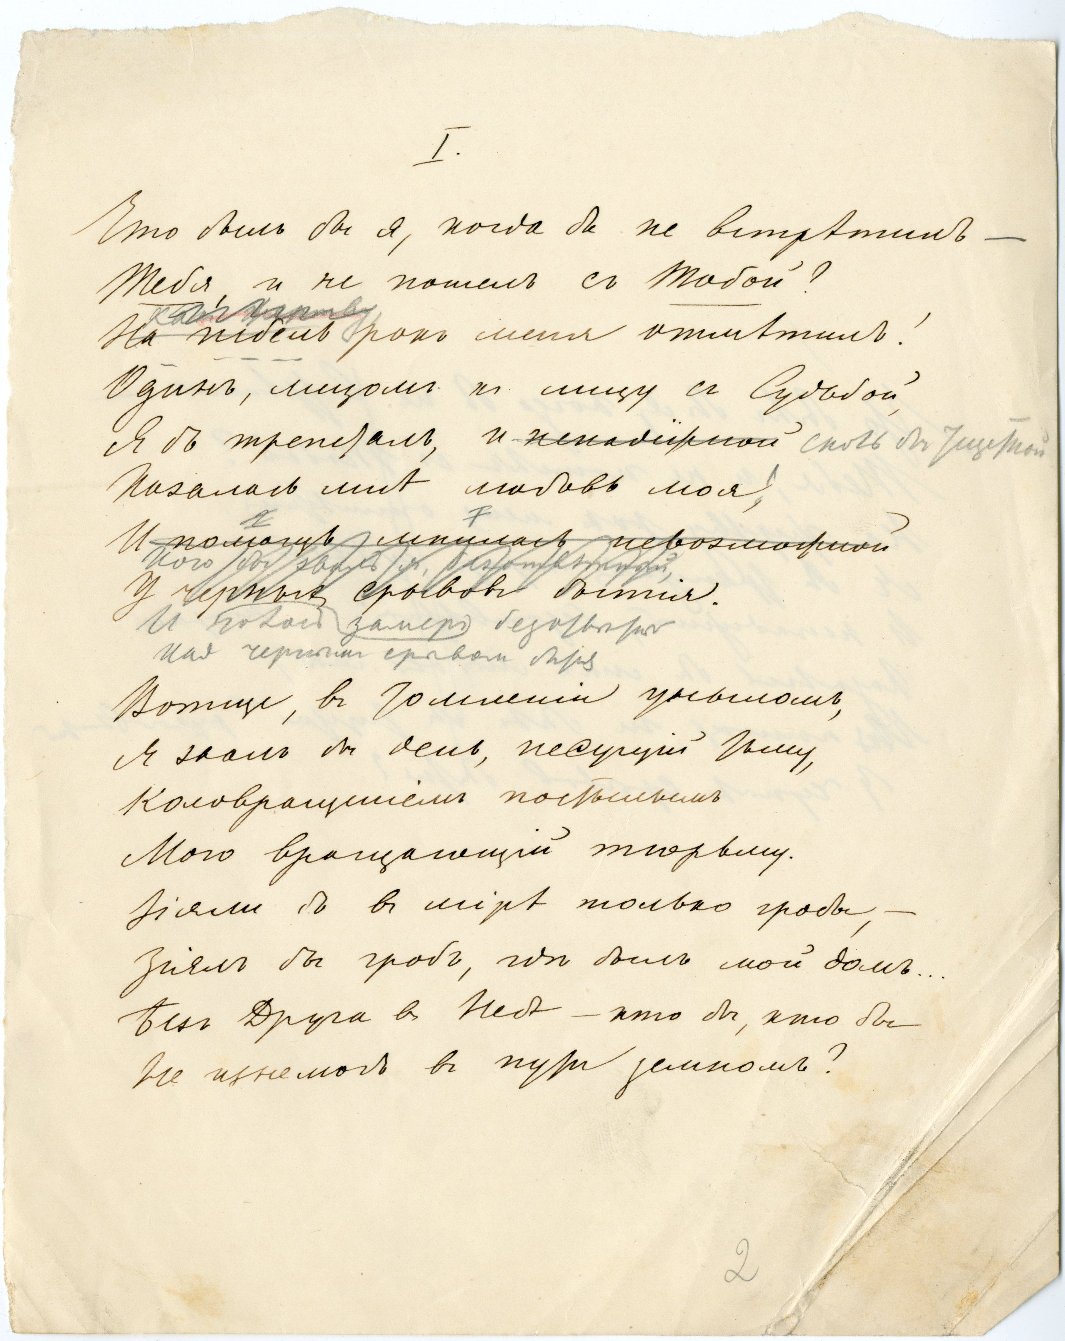 I.
Кто былъ бы я, когда бъ не встрѣтилъ —
Тебя, и не пошелъ съ Тобой?
Какъ жертву
На гибель рокъ меня отмѣтилъ!
Одинъ, лицомъ къ лицу съ Судьбой,
Я бъ трепеталъ, и ненадёжной столь бы тщетной
Казалась мнѣ любовь моя!
И помощь мнилась невозможной
Кого бы звалъ я, безотвѣтный,
У черныхъ срывовъ бытія.
И замеръ безотвѣтно
Надъ чернымъ срывомъ бытія
Вотще, въ томленіи уныломъ,
Я звалъ бы день, несущій тьму,
Коловращеніемъ постылымъ
Мою вращающій тюрьму.
Зіяли бъ въ мірѣ только гробы, —
Зіялъ бы гробъ, гдѣ былъ мой домъ...
Безъ Друга въ Небѣ — кто бы, кто бы
Не изнемогъ въ пути земномъ?
2